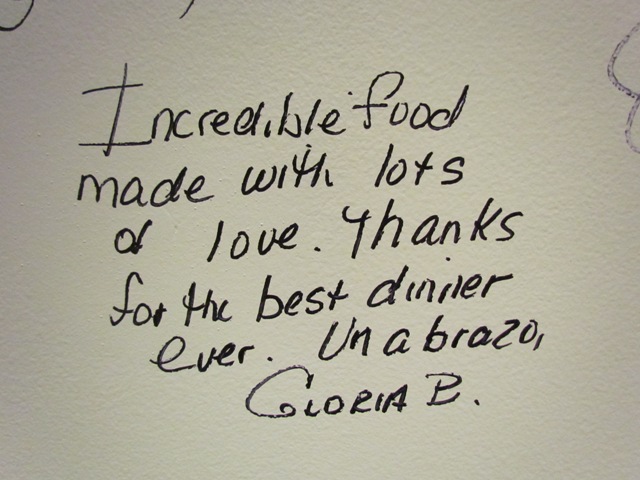 Incredible food
made with lots
of love. Thanks
for the best dinner
ever. Un abrazo,
GLORIA B.